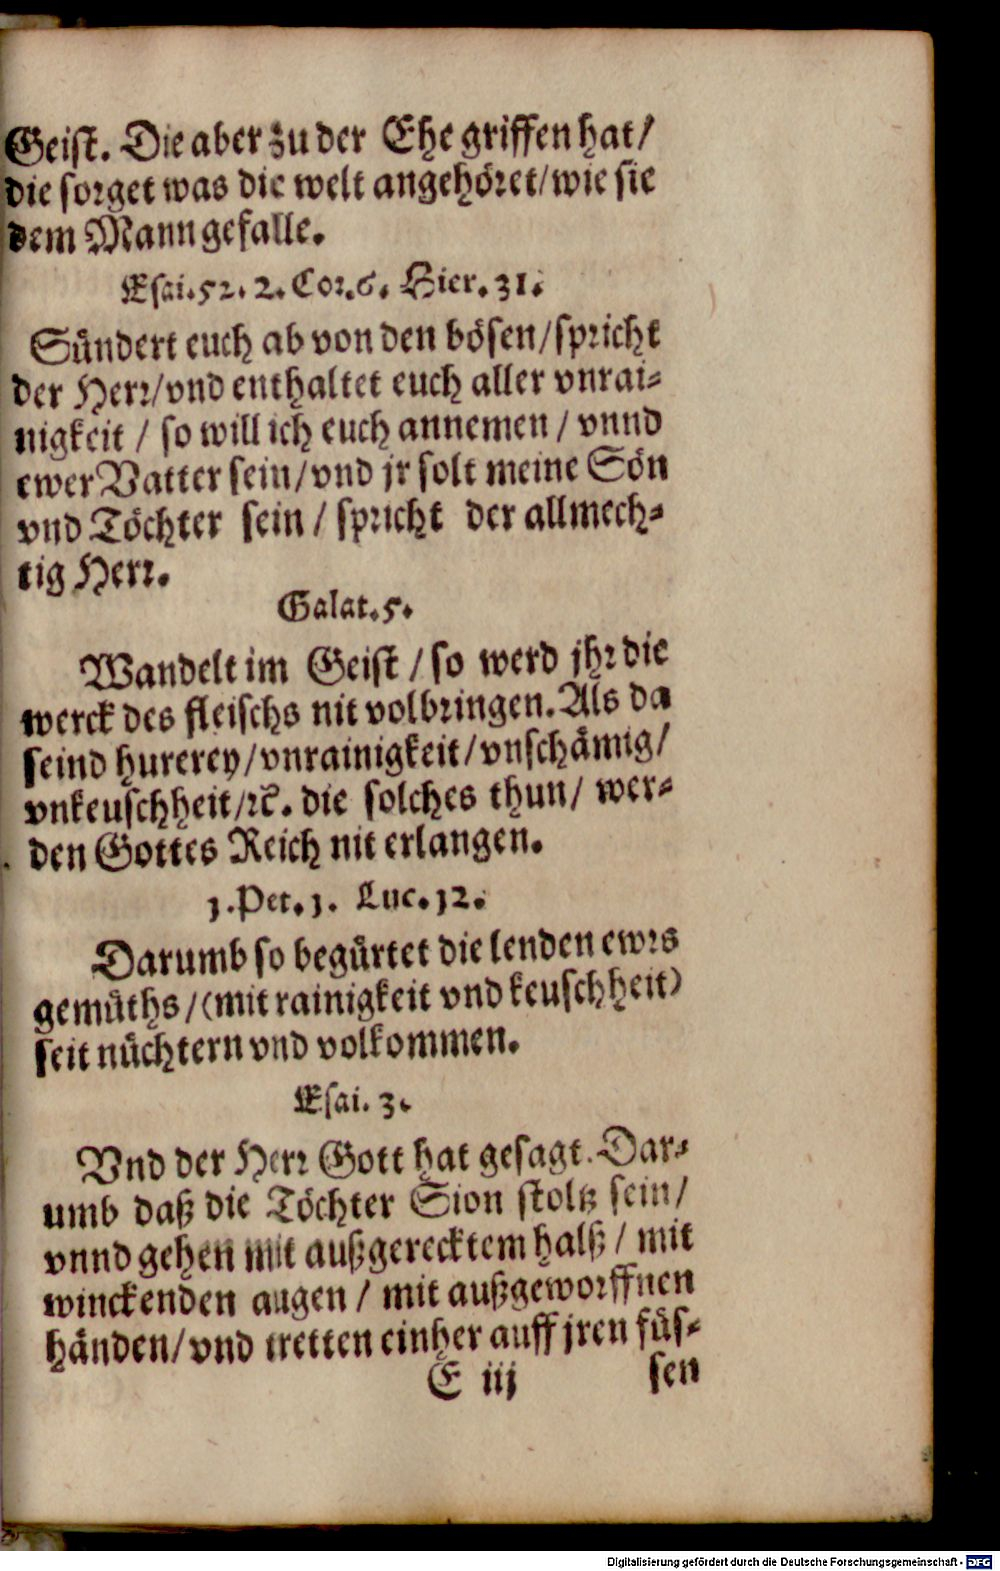 Geist. Die aber zu der Ehe griffen hat/
die sorget was die welt angehöret/ wie sie
dem Mann gefalle.
Esai. 52. 2. Cor. 6. Hier. 31.
Sündert euch ab von den bösen/ spricht
der Herr/ vnd enthaltet euch aller vnrai-
nigkeit / so will ich euch annemen / vnnd
ewer Vatter sein/ vnd jr solt meine Sön
vnd Töchter sein / spricht der allmech-
tig Herr.
Galat. 5.
Wandelt im Geist / so werd jhr die
werck des fleischs nit volbringen. Als da
seind hurerey/ vnrainigkeit/ vnschämig/
vnkeuschheit/ ꝛc. die solches thun/ wer-
den Gottes Reich nit erlangen.
1. Pet. 1. Luc. 12.
Darumb so begürtet die lenden ewrs
gemüths/ (mit rainigkeit vnd keuschheit)
seit nüchtern vnd volkommen.
Esai. 3.
Vnd der Herr Gott hat gesagt. Dar-
umb daß die Töchter Sion stoltz sein/
vnnd gehen mit außgerecktem halß / mit
winckenden augen / mit außgeworffnen
händen/ vnd tretten einher auff jren füs-
E iij sen
Digitalisierung gefördert durch die Deutsche Forschungsgemeinschaft - DFG